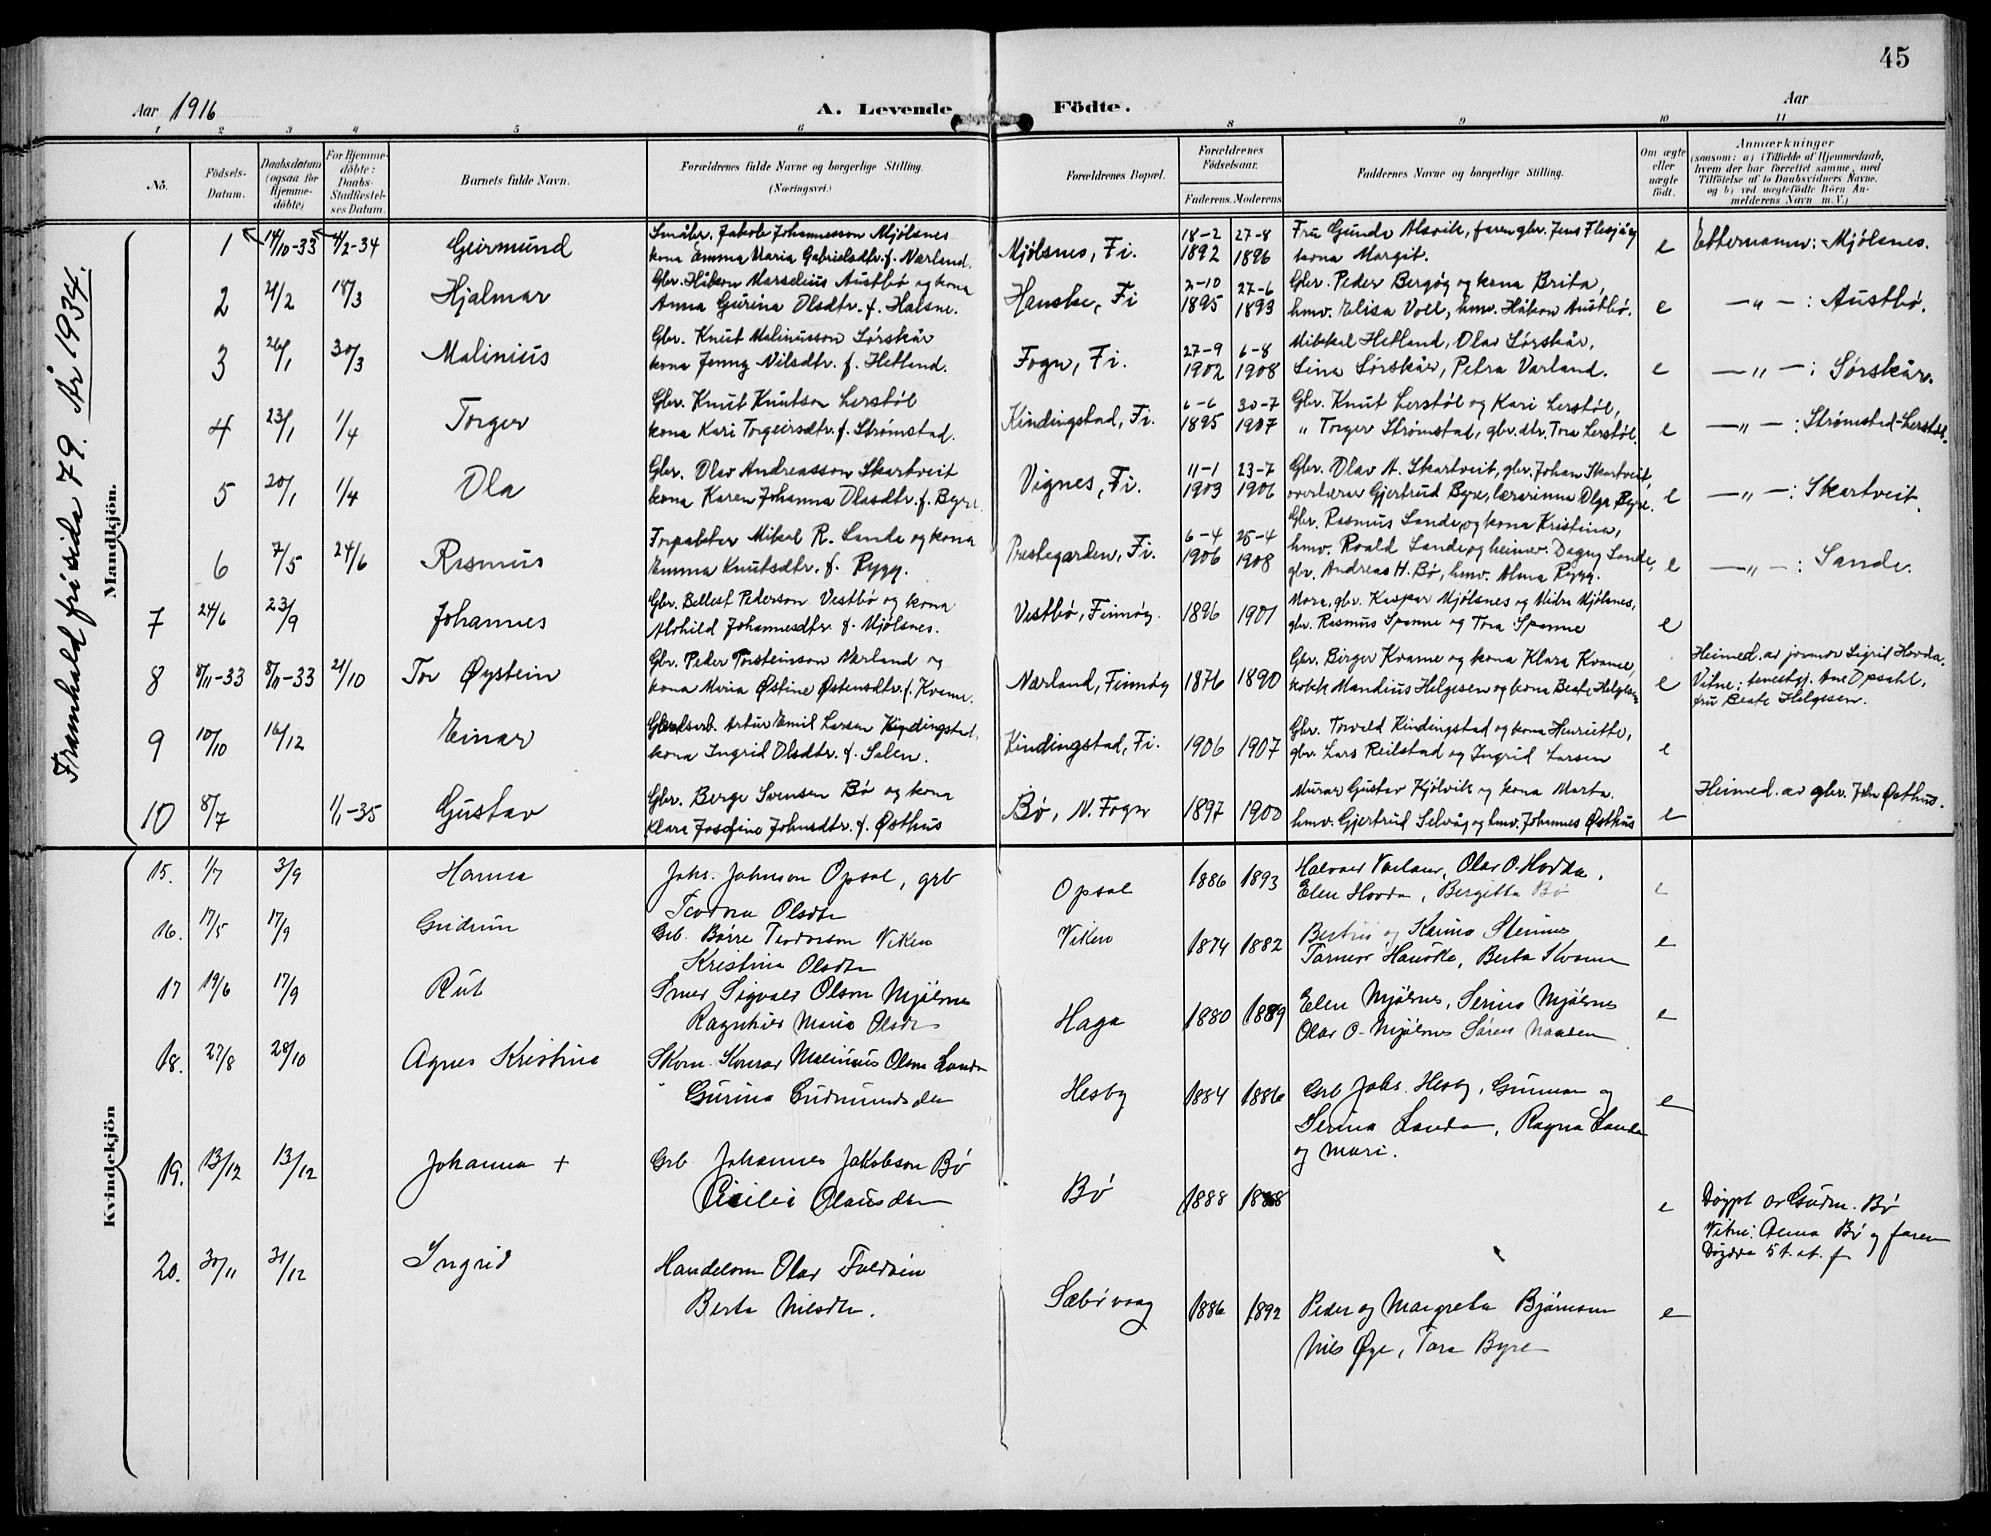 45
Aar 1916
A. Levende Födte.
Aar
1 2 3 4 5 6 8 9 10 11
No.
Födsels-Datum.
Daabsdatum (ogsaa for Hjemme-döbte)
For Hjemme-döbte: Daabs-Stadfæstel-ses Datum.
Barnets fulde Navn.
Forældrenes fulde Navne og borgerlige Stilling.
(Næringsvei.)
Forældrenes Bopæl.
Forældrenes Födselsaar.
Faderens. Moderens.
Faddernes Navne og borgerlige Stilling.
Om ægte eller uægte födt.
Anmærkninger
(saasom: a) i Tilfælde af Hjemmedaab,
hvem der har forrettet samme, med
Tilföielse af to Daabsvidners Navne,
og b) ved uægtefödte Börn An-
melderens Navn m. V.)
Framhald frå sida 79. År 1934.
Mandkjön.
1 14/10-33 4/2-34 Geirmund
Småbr. Jakob Johannesson Mjølsnes
kona Emma Maria Gabrielsdtr. f. Nærland.
Mjølsnes, Fi. 18-2 1892 27-8 1896
Fru Gunda Alsvik, farengbr. Jens Flesjåg
kona Margit. e Etternamn: Mjølsnes.
2 4/2 18/3 Hjalmar
Gbr. Håkon Marselius Austbø og kona
Anna Gurina Olsdtr. f. Halsne.
Hanske, Fi 2-10 1895 27-6 1893
Gbr. Peder Bergøy og kona Brita,
hmv. Elisa Voll, hmv. Håkon Austbø. e — " — : Austbø.
3 26/1 30/3 Malinius
Gbr. Knut Malinusson Sørskår
kona Jenny Nilsdtr. f. Hetland.
Fogn, Fi. 27-9 1902 6-8 1908
Mikkal Hetland, Olav Sørskår,
Lina Sørskår, Petra Varland. e — " — : Sørskår.
4 23/1 1/4 Torger
Gbr. Knut Knutson Lerstøl
kona Kari Torgeirsdtr. f. Strømstad.
Kindingstad, Fi. 6-6 1895 30-7 1907
Gbr. Knut Lerstøl og Kari Lerstøl,
" Torger Strømstad, gbr. dtr. Tora Lerstøl. e — " — : Strømstad-Lerstøl.
5 20/1 1/4 Ola
Gbr. Olav Andreasson Skartveit
kona Karen Johanna Olasdtr. f. Byre.
Vignes, Fi. 11-1 1903 23-7 1906
Gbr. Olav A. Skartveit, gbr. Johan Skartveit,
overlærar Gjertrud Byre, lærarinna Olga Byre. e — " — : Skartveit.
6 7/5 24/6 Rasmus
Forpakter Mikal R. Sande og kona
Emma Knutsdtr. f. Rygg.
Prestegarden, Fi. 6-4 1906 25-4 1908
Gbr. Rasmus Sande og kona Kristina,
hmv. Roald Sande og heimev. Dagny Sande,
gbr. Andreas H. Bø, hmv. Alma Rygg. e — " — : Sande.
7 24/6 23/9 Johannes
Gbr. Bellest Pederson Vestbø og kona
Alvhild Johannesdtr. f. Mjølsnes.
Vestbø, Finnøy. 1896 1901
Mora, gbr. Kaspar Mjølsnes og Midra Mjølsnes,
gbr. Rasmus Spanne og Tora Spanne e
8 8/11-33 8/11-33 21/10 Tor Øystein
Gbr. Peder Torsteinson Nærland og
kona Maria Østine Østensdtr. f. Kvame.
Nærland, Finnøy 1876 1890
Gbr. Birger Kvame og kona Klara Kvame,
kokk Mandius Helgesen og kona Beate Helgesen e
Heimed. av jormor Sigrid Hovda.
Vitne: tenestgj. Ane Opsahl,
fru Beate Helgesen.
9 10/10 16/12 Einar
Artur Emil Larsen Kindingstad,
kona Ingrid Olsdtr. f. Salen.
Kindingstad, Fi. 1906 1907
Gbr. Torvald Kindingstad og kona Henriette,
gbr. Lars Reilstad og Ingrid Larsen e
10 8/7 1/1-35 Gustav
Gbr. Berge Svensen Bø og kona
Klara Josefine Johnsdtr. f. Østhus
Bø, N. Fogn 1897 1900
Murar Gustav Kjølvik og kona Marta.
hmv. Gjertrud Selvåg og hmv. Johannes Østhus e
Heimed. av gbr. John Østhus.
Kvindekjön
15. 1/7 3/9 Hanna
Johs. Johnson Opsal, grb
Teodora Olsdtr
Opsal 1886 1893
Halvar Varland, Olav O. Hovda,
Elen Hovda, Bergitta Bø e
16. 17/5 17/9 Gudrun
Grb. Børre Teodorson Viken
Kristina Olsdtr
Viken 1874 1882
Bertus og Karina Steinnes
Tarmor Hauske, Berta Kvame e
17 19/6 17/9 Rut
Smed Sigvald Olson Mjølsnes
Ragnhild Maria Olsdtr
Haga 1880 1889
Elen Mjølsnes, Serina Mjølsnes
Olav O. Mjølsnes Søren Naaden e
18. 27/8 28/10 Agnes Kristina
Skom. Konrad Malinius Olson Landa
Gurina Gudmundsdtr
Hesby 1884 1886
Grb Johs. Hesby, Gunnar og
Serina Landa, Ragna Landa
og Mari. e
19. 13/12 13/12 Johanna +
Grb Johannes Jakobson Bø
Cicilia Olausdtr
Bø 1888 1888 e
Døypt av Gudm. Bø
Vitni: Anna Bø og faren
Døydde 5 t. et. f
20. 30/11 31/12 Ingrid
Handelsm Olav Foldøin
Berta Nilsdtr.
Sæbøvaag 1886 1892
Peder og Margreta Bjørnson
Nils Øye, Tora Byre e